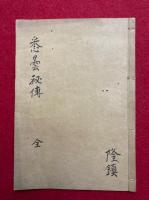 悉曇秘傳
全
隆鎮